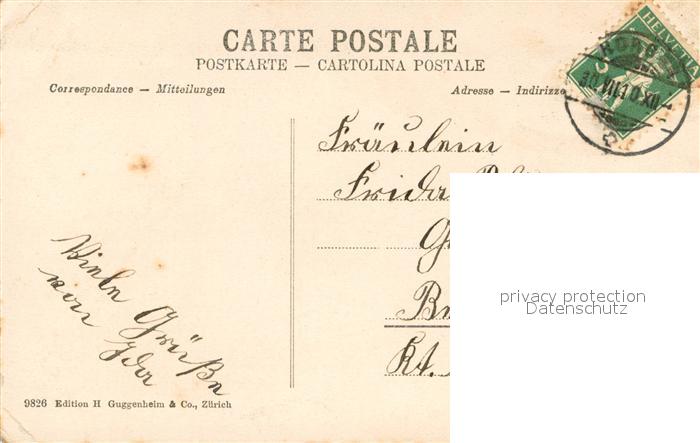 CARTE POSTALE
POSTKARTE — CARTOLINA POSTALE
Correspondance — Mitteilungen
Adresse — Indirizzo
HELVETIA
HORGEN
Fräulein
Frida
Kt.
Viele Grüße
von Ida
privacy protection
Datenschutz
9826 Edition H Guggenheim & Co., Zürich